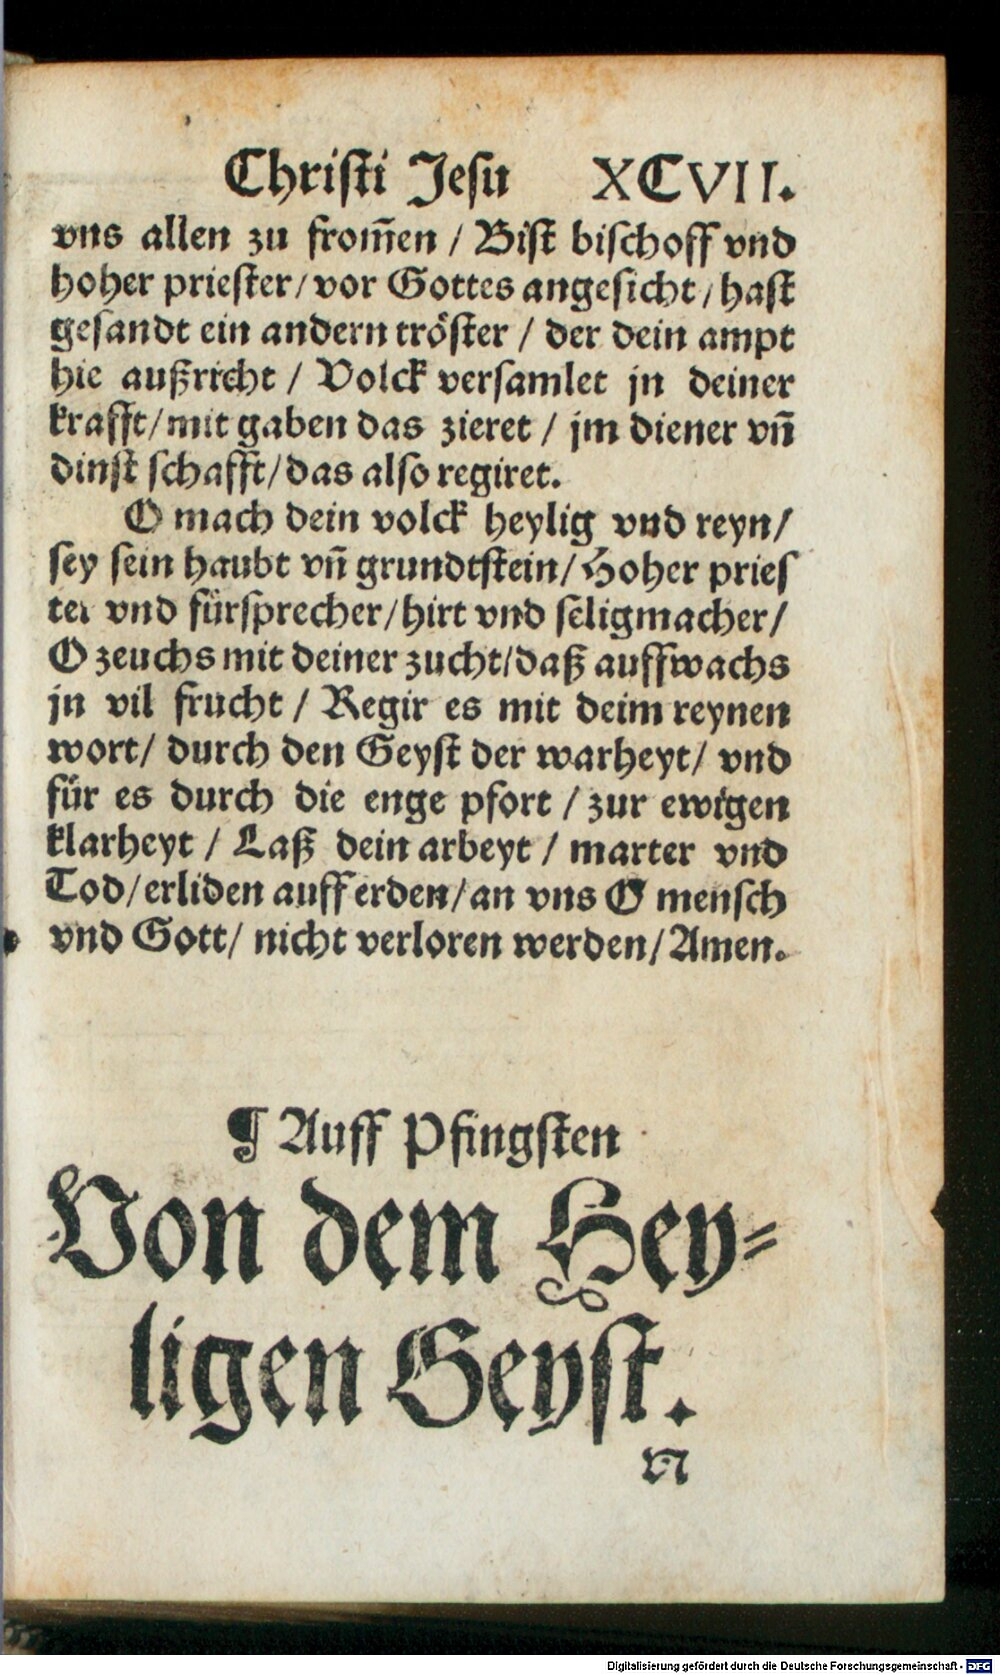 Christi Jesu XCVII.
vns allen zu from̃en / Bist bischoff vnd
hoher priester / vor Gottes angesicht / hast
gesandt ein andern tröster / der dein ampt
hie außricht / Volck versamlet jn deiner
krafft / mit gaben das zieret / jm diener vñ
dinst schafft / das also regiret.
O mach dein volck heylig vnd reyn /
sey sein haubt vñ grundtstein / Hoher pries
ter vnd fürsprecher / hirt vnd seligmacher /
O zeuchs mit deiner zucht / daß auffwachs
jn vil frucht / Regir es mit deim reynen
wort / durch den Geyst der warheyt / vnd
für es durch die enge pfort / zur ewigen
klarheyt / Laß dein arbeyt / marter vnd
Tod / erliden auff erden / an vns O mensch
vnd Gott / nicht verloren werden / Amen.
¶ Auff Pfingsten
Von dem Hey-
ligen Geyst.
N
Digitalisierung gefördert durch die Deutsche Forschungsgemeinschaft - DFG